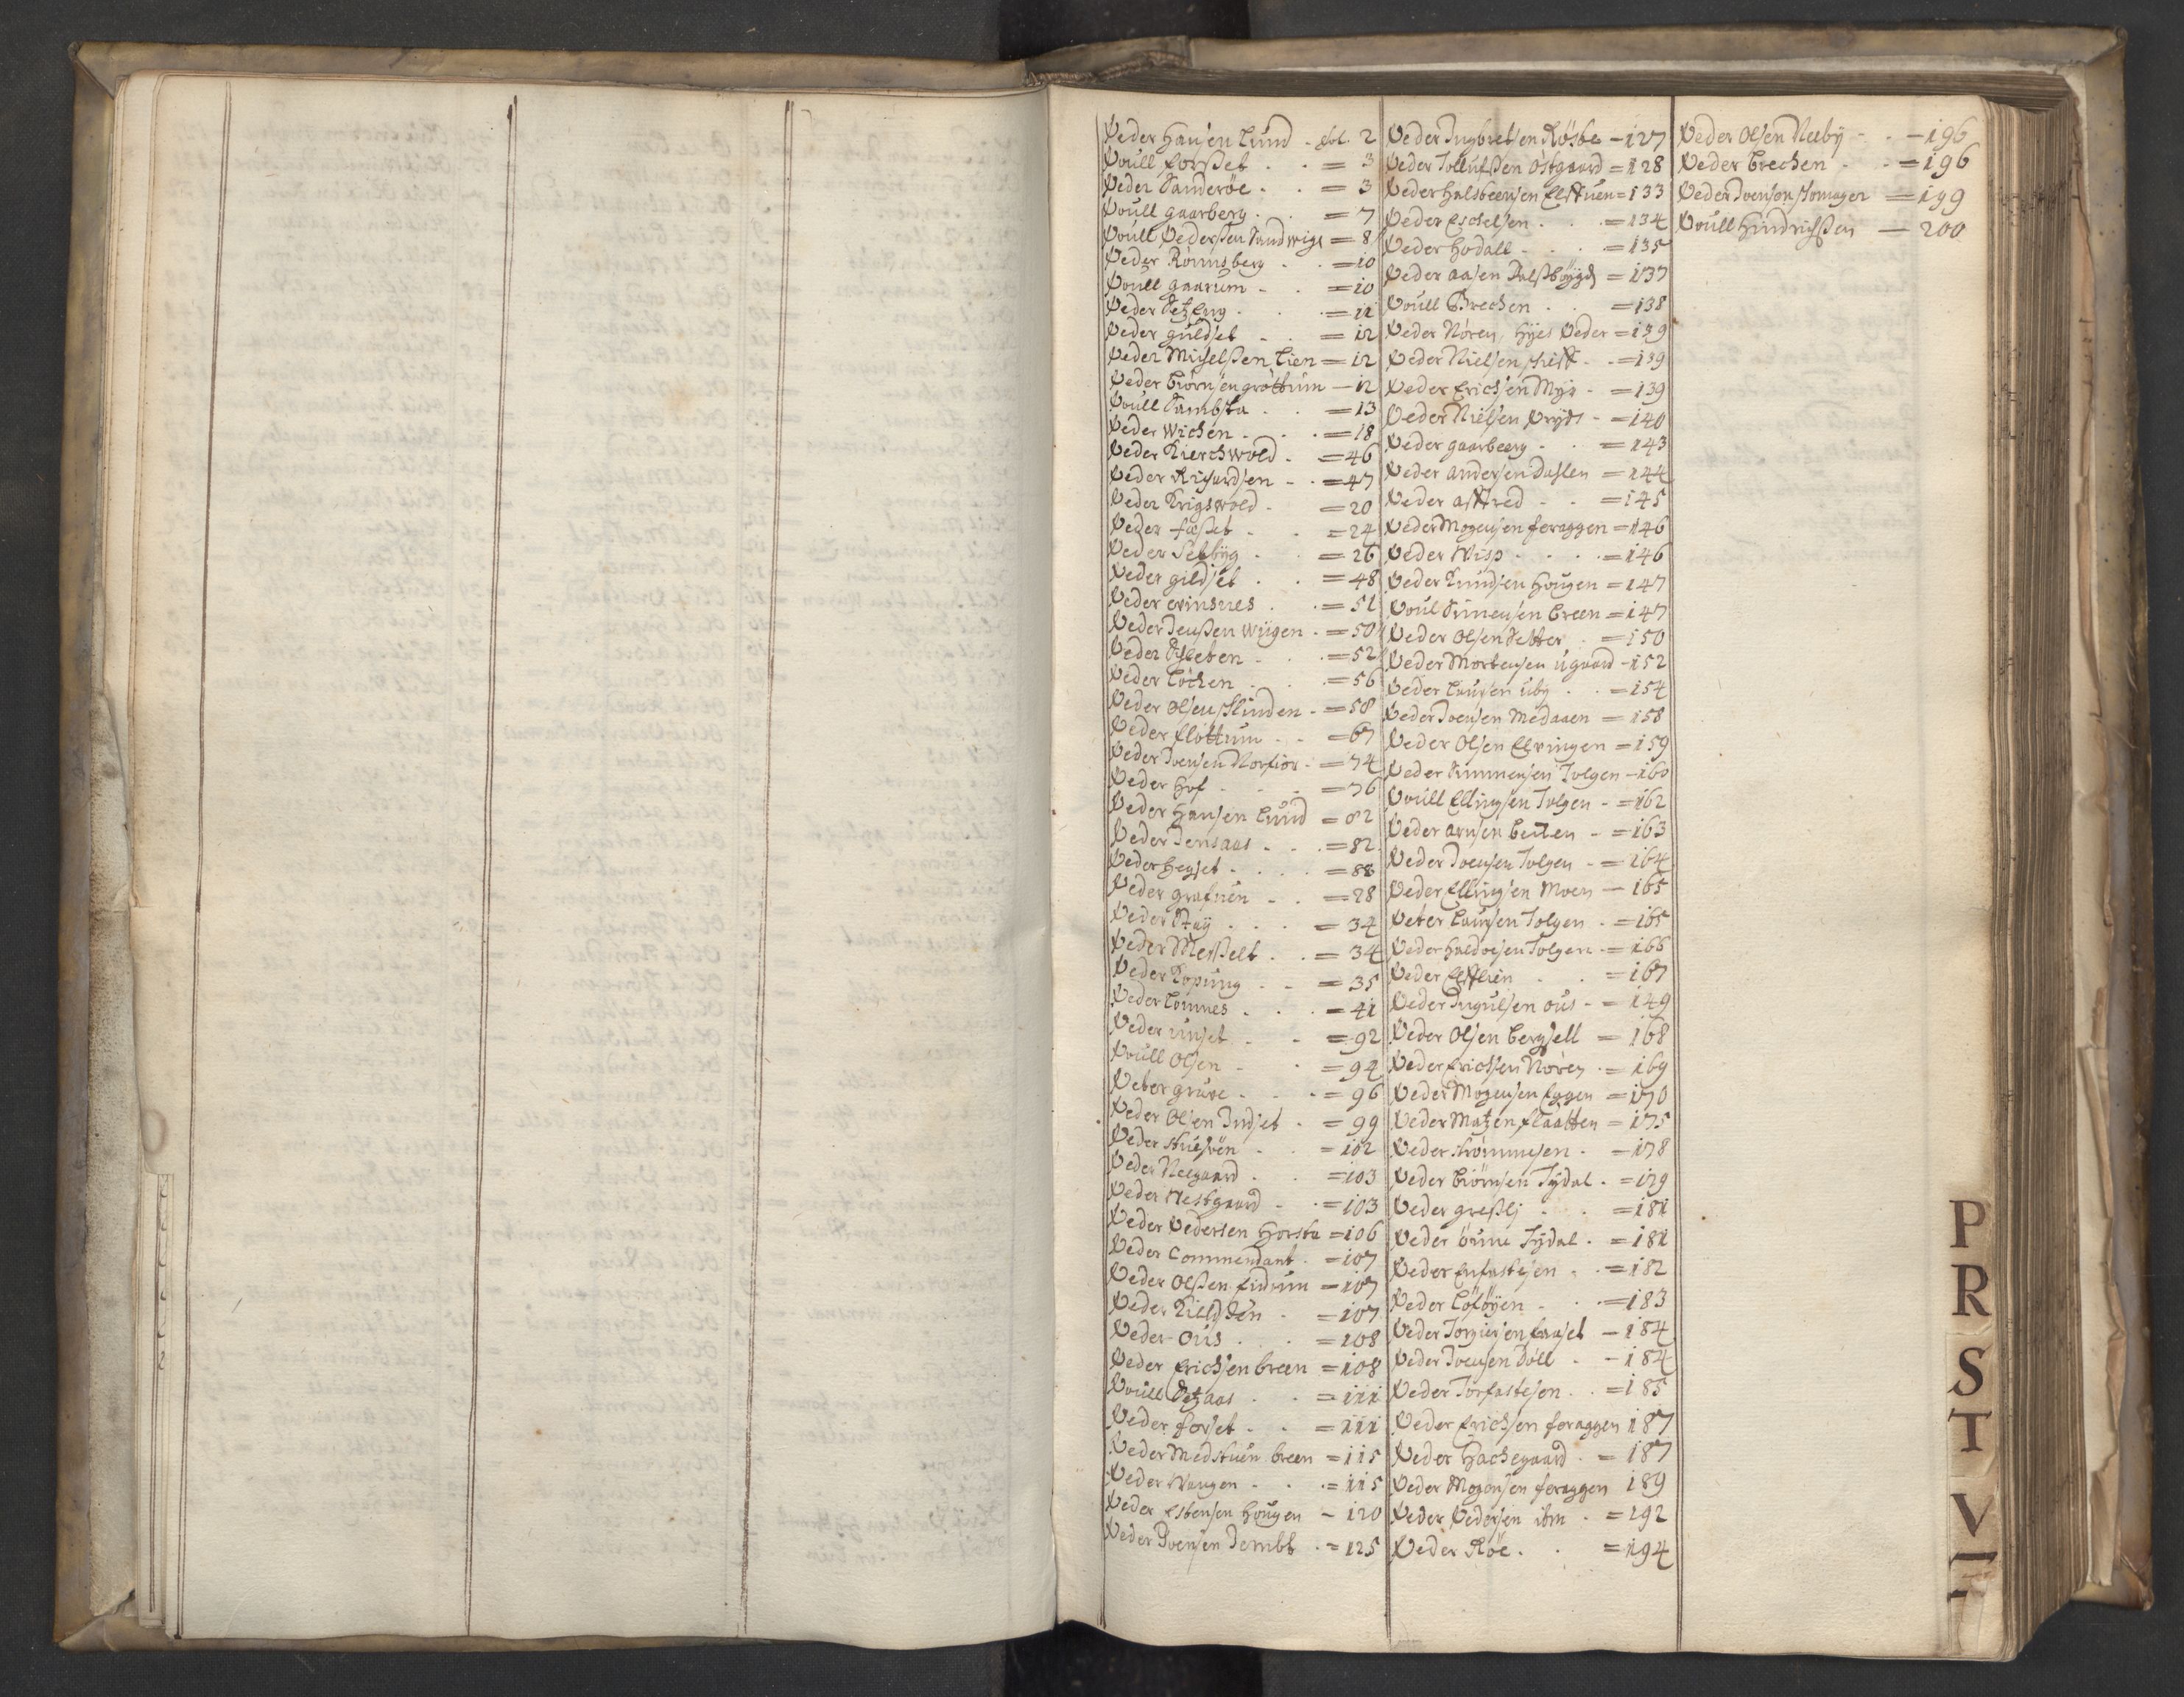 Peder Hansen Lund - fol. 2
Poull Forsset = 3
Peder Sanderöe = 3
Poull Gaarberg = 7
Poull Pedersen Sandwige = 8
Peder Rönnsberg = 10
Poull Gaarum = 10
Peder Setzberg = 11
Peder Guldset = 12
Peder Michelssen Lien = 12
Peder Biörnsen Gröttum - 12
Poull Sambsta = 13
Peder Wichen = 18
Peder Kierchwold = 46
Peder Richardsen = 47
Peder Krigswold = 20
Peder Fæsset = 24
Peder Selbyg = 26
Peder Gildset = 48
Peder Evinsnes = 51
Peder Jenssen Wiigen = 50
Peder = 52
Peder Löchen = 56
Peder Olsen Flinden = 58
Peder Flöttum = 67
Peder Joensen Norfior = 74
Peder Hof = 76
Peder Hansen Lund = 82
Peder Jensaas = 82
Peder Hegset = 88
Peder Grafuen = 28
Peder Stay = 34
Peder Messelt = 34
Peder Kopung = 35
Peder Lomnes = 41
Peder Unset = 92
Poull Olsen = 94
Peter Gruve = 96
Peder Olsen Indset = 99
Peder Stuesven = 102
Peder Neegaard = 103
Peder Westgaard = 103
Peder Pedersen Horsta = 106
Peder Commendant = 107
Peder Olssen Fidrum = 107
Peder Killdden = 107
Peder Ous = 108
Peder Erichsen Breen = 108
Poull Setzaas = 111
Peder Forset = 111
Peder Medstuen Breen = 115
Peder Wangen = 115
Peder Estensen Hougen - 120
Peder Joensen Jembt = 125
Peder Ingbretsen Röste - 127
Peder Tollufssen Östgaard = 128
Peder Halsteensen Elstuen = 133
Peder Eschelsen = 134
Peder Hodall = 135
Peder Aasen Dalssböygd = 137
Poull Brechen = 138
Peder Noren, Hÿes Peder = 139
Peder Nielsen Skift = 139
Peder Erichsen Myr = 139
Peder Nielsen Prÿds = 140
Peder Gaarbeerg = 143
Peder Andersen Dahlen = 144
Peder Alfred = 145
Peder Mogensen Feraggen = 146
Peder Wisp = 146
Peder Knudsen Hougen = 147
Poul Simensen Breen = 147
Peder Olsen Setter = 150
Peder Mortensen Ugaard - 152
Peder Laursen Uby = 154
Peder Joensen Medaaen = 158
Peder Olsen Elvingen = 159
Peder Simmensen Tolgen - 160
Poull Ellingsen Tolgen = 162
Peder Arnsen Beiten = 163
Peder Joensen Tolgen = 164
Peder Ellingsen Moen - 165
Peter Laursen Tolgen = 165
Peder Haldoesen Tolgen = 166
Peder Elfflien = 167
Peder Ingulsen Ous = 149
Peder Olsen Bergsell = 168
Peder Erichsen Noren = 169
Peder Mogensen Eggen = 170
Peder Matzen Flaatten = 175
Peder Strömmesen = 178
Peder Biörnsen Tÿdal = 179
Peder Gresslj = 181
Peder Önne Tÿdal = 181
Peder Enfastesen = 182
Peder Löföyen = 183
Peder Torgiersen Faaset - 184
Peder Joensen Döll - 184
Peder Torfastesen = 185
Peder Erichsen Feraggen 187
Peder Hachegaard = 187
Peder Mogensen Feraggen 189
Peder Pedersen ibm = 192
Peder Röe = 194
Peder Olsen Neeby - 196
Peder Brechen = 196
Peder Joensen Somager = 199
Poull Hindrichssen - 200
P
R
S
T
V